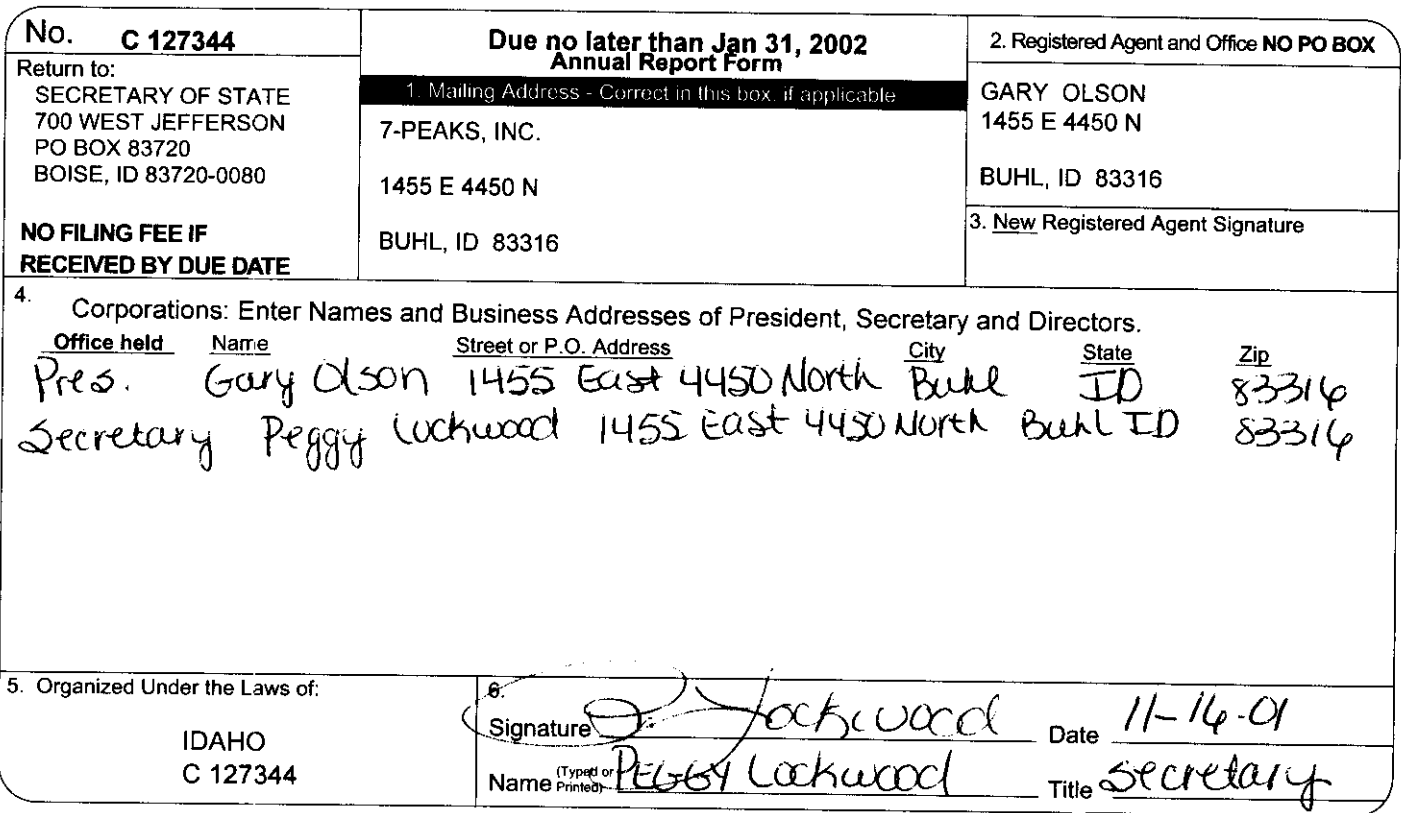 No. C 127344
Return to:
SECRETARY OF STATE
700 WEST JEFFERSON
PO BOX 83720
BOISE, ID 83720-0080
NO FILING FEE IF
RECEIVED BY DUE DATE
Due no later than Jan 31, 2002
Annual Report Form
1. Mailing Address - Correct in this box, if applicable
7-PEAKS, INC.
1455 E 4450 N
BUHL, ID 83316
2. Registered Agent and Office NO PO BOX
GARY OLSON
1455 E 4450 N
BUHL, ID 83316
3. New Registered Agent Signature
4. Corporations: Enter Names and Business Addresses of President, Secretary and Directors.
Office held Name Street or P.O. Address City State Zip
Pres. Gary Olson 1455 East 4450 North Buhl ID 83316
Secretary Peggy Lockwood 1455 East 4450 North Buhl ID 83316
5. Organized Under the Laws of:
IDAHO
C 127344
6.
Signature P. Lockwood Date 11-16-01
Name (Typed or Printed) PEGGY Lockwood Title Secretary